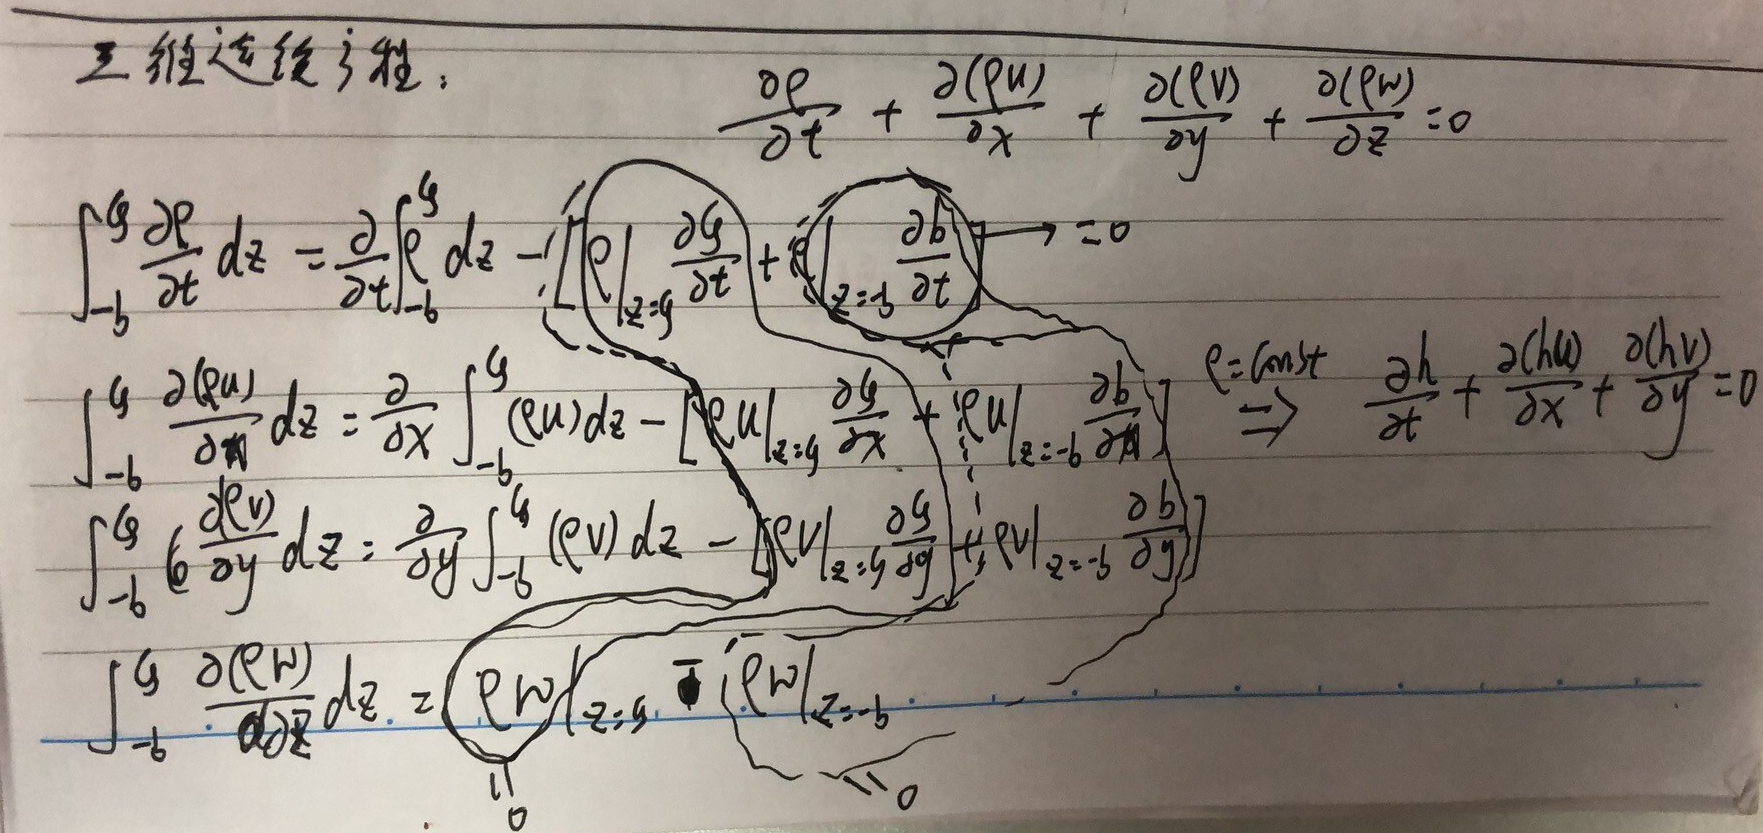 三维连续方程:
∂ρ/∂t + ∂(ρu)/∂x + ∂(ρv)/∂y + ∂(ρw)/∂z = 0
∫_{-b}^{ζ} ∂ρ/∂t dz = ∂/∂t ∫_{-b}^{ζ} ρ dz - [ρ|_{z=ζ} ∂ζ/∂t + ρ|_{z=-b} ∂b/∂t] → = 0
∫_{-b}^{ζ} ∂(ρu)/∂x dz = ∂/∂x ∫_{-b}^{ζ} (ρu) dz - [ρu|_{z=ζ} ∂ζ/∂x + ρu|_{z=-b} ∂b/∂x] ρ=const ⇒ ∂h/∂t + ∂(hu)/∂x + ∂(hv)/∂y = 0
∫_{-b}^{ζ} ∂(ρv)/∂y dz = ∂/∂y ∫_{-b}^{ζ} (ρv) dz - [ρv|_{z=ζ} ∂ζ/∂y + ρv|_{z=-b} ∂b/∂y]
∫_{-b}^{ζ} ∂(ρw)/∂z dz = ρw|_{z=ζ} - ρw|_{z=-b}
= 0
= 0